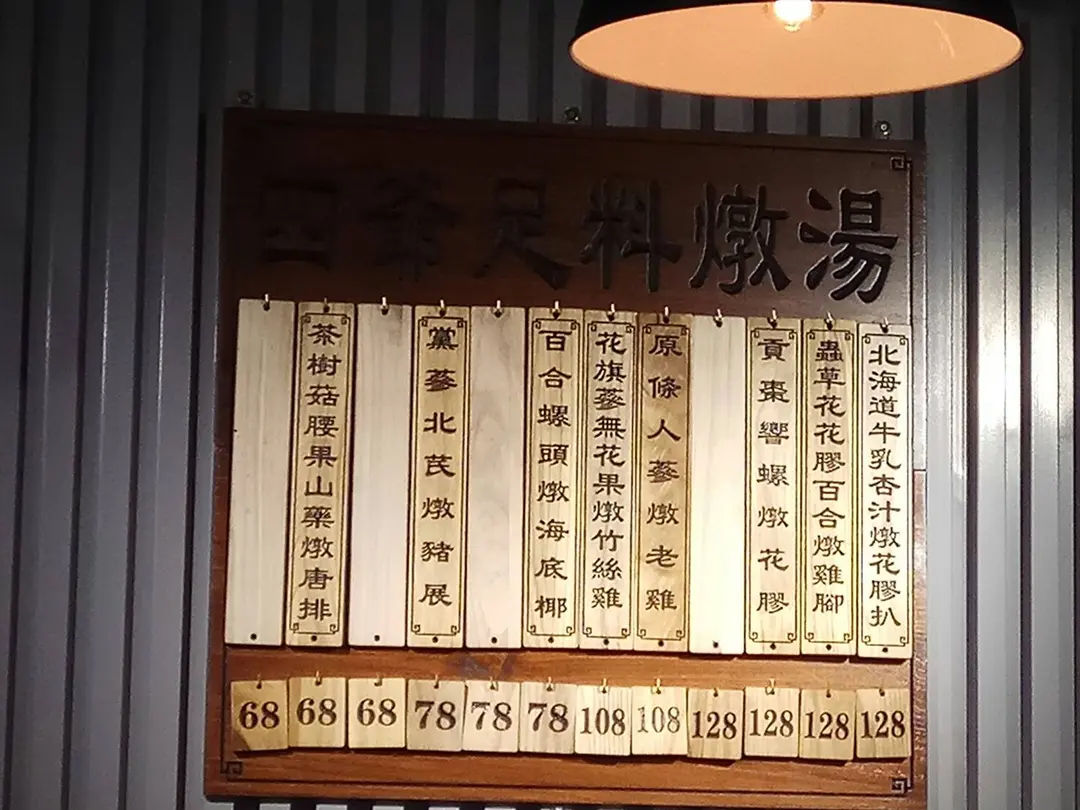 四爺足料燉湯
茶樹菇腰果山藥燉唐排
黨蔘北芪燉豬展
百合螺頭燉海底椰
花旗蔘無花果燉竹絲雞
原條人蔘燉老雞
貢棗響螺燉花膠
蟲草花花膠百合燉雞腳
北海道牛乳杏汁燉花膠扒
68 68 68 78 78 78 108 108 128 128 128 128